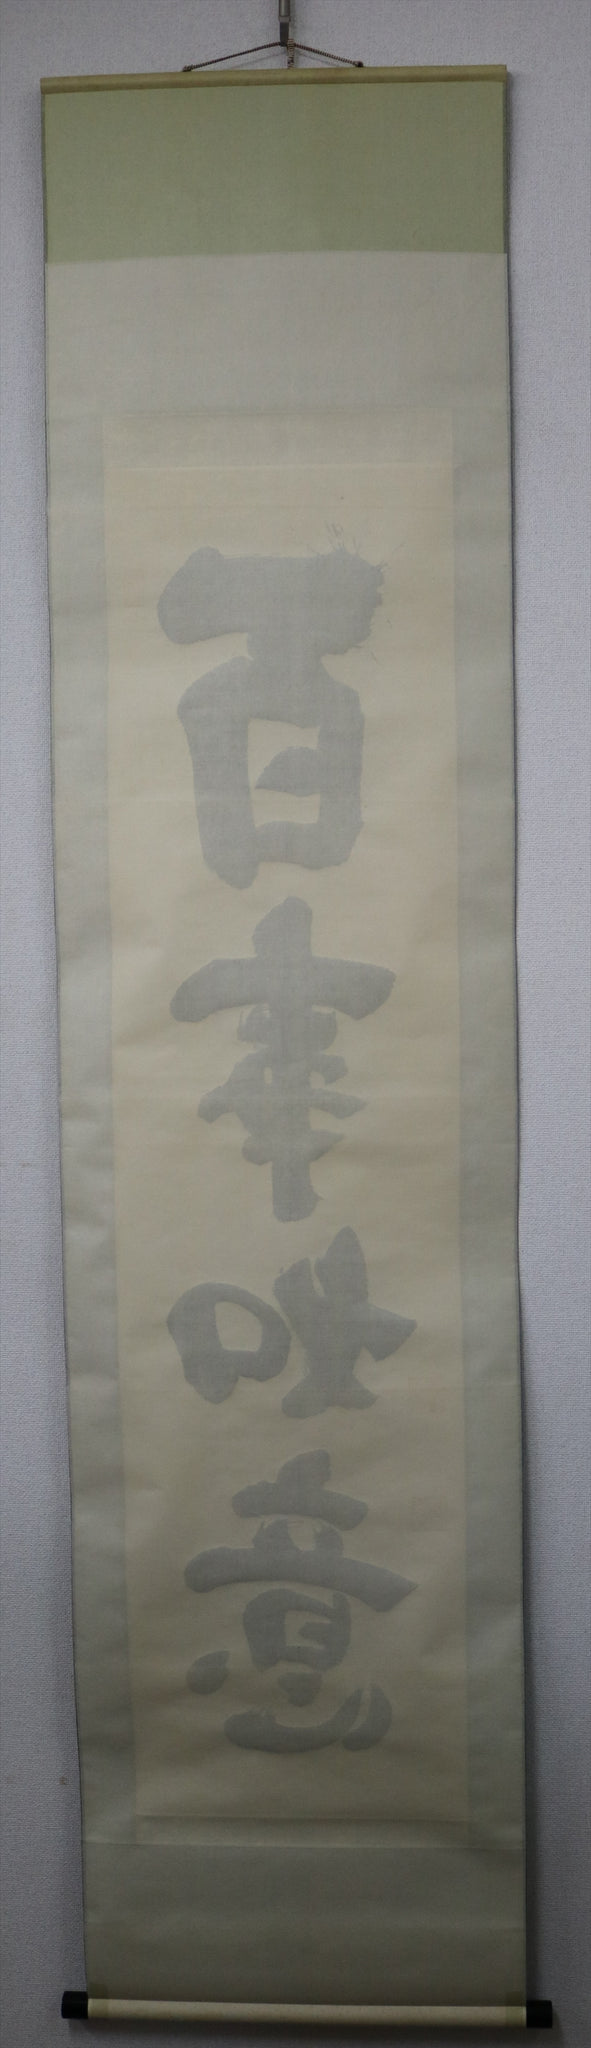 百事如意